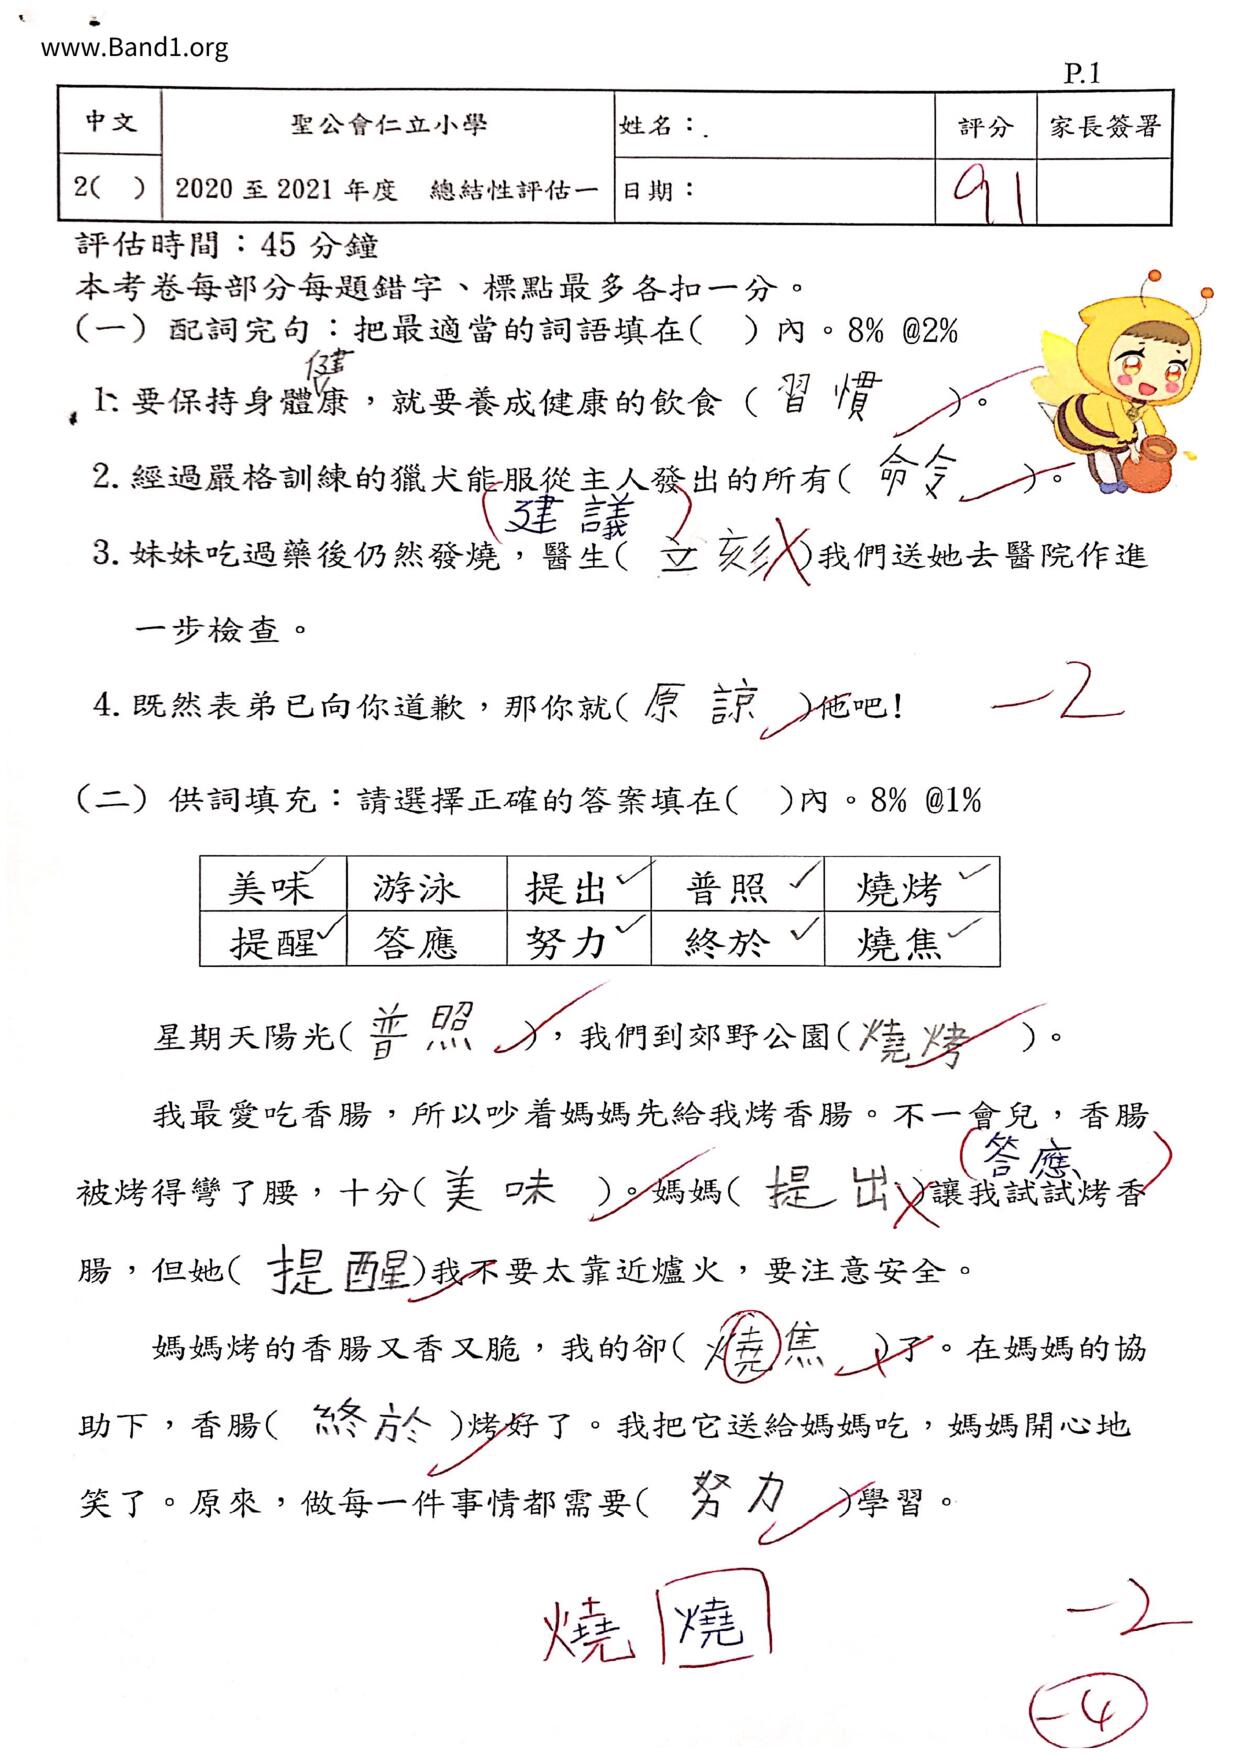 www.Band1.org
P.1
中文 聖公會仁立小學 姓名： 評分 家長簽署
2( ) 2020 至 2021 年度 總結性評估一 日期： 91
評估時間：45 分鐘
本考卷每部分每題錯字、標點最多各扣一分。
（一）配詞完句：把最適當的詞語填在( )內。8% @2%
健
1. 要保持身體康，就要養成健康的飲食（習慣）。
2. 經過嚴格訓練的獵犬能服從主人發出的所有(命令)。
(建議)
3. 妹妹吃過藥後仍然發燒，醫生(立刻)我們送她去醫院作進
一步檢查。
4. 既然表弟已向你道歉，那你就(原諒)他吧!
-2
（二）供詞填充：請選擇正確的答案填在( )內。8% @1%
美味 游泳 提出 普照 燒烤
提醒 答應 努力 終於 燒焦
星期天陽光(普照)，我們到郊野公園(燒烤)。
我最愛吃香腸，所以吵着媽媽先給我烤香腸。不一會兒，香腸
(答應)
被烤得彎了腰，十分(美味)。媽媽(提出)讓我試試烤香
腸，但她(提醒)我不要太靠近爐火，要注意安全。
媽媽烤的香腸又香又脆，我的卻(燒焦)了。在媽媽的協
助下，香腸(終於)烤好了。我把它送給媽媽吃，媽媽開心地
笑了。原來，做每一件事情都需要(努力)學習。
燒 燒
-2
-4